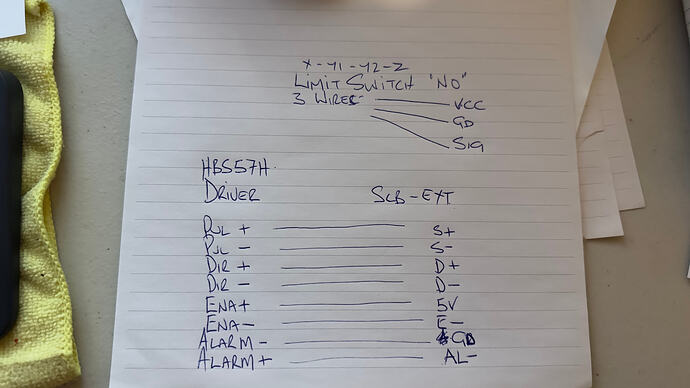 X-Y1-Y2-Z
LIMIT SWITCH "NO"
3 WIRES VCC
GD
SIG
HBS57H
DRIVER SCB-EXT
PUL + S+
PUL - S-
DIR + D+
DIR - D-
ENA+ 5V
ENA- E-
ALARM- GD
ALARM+ AL-